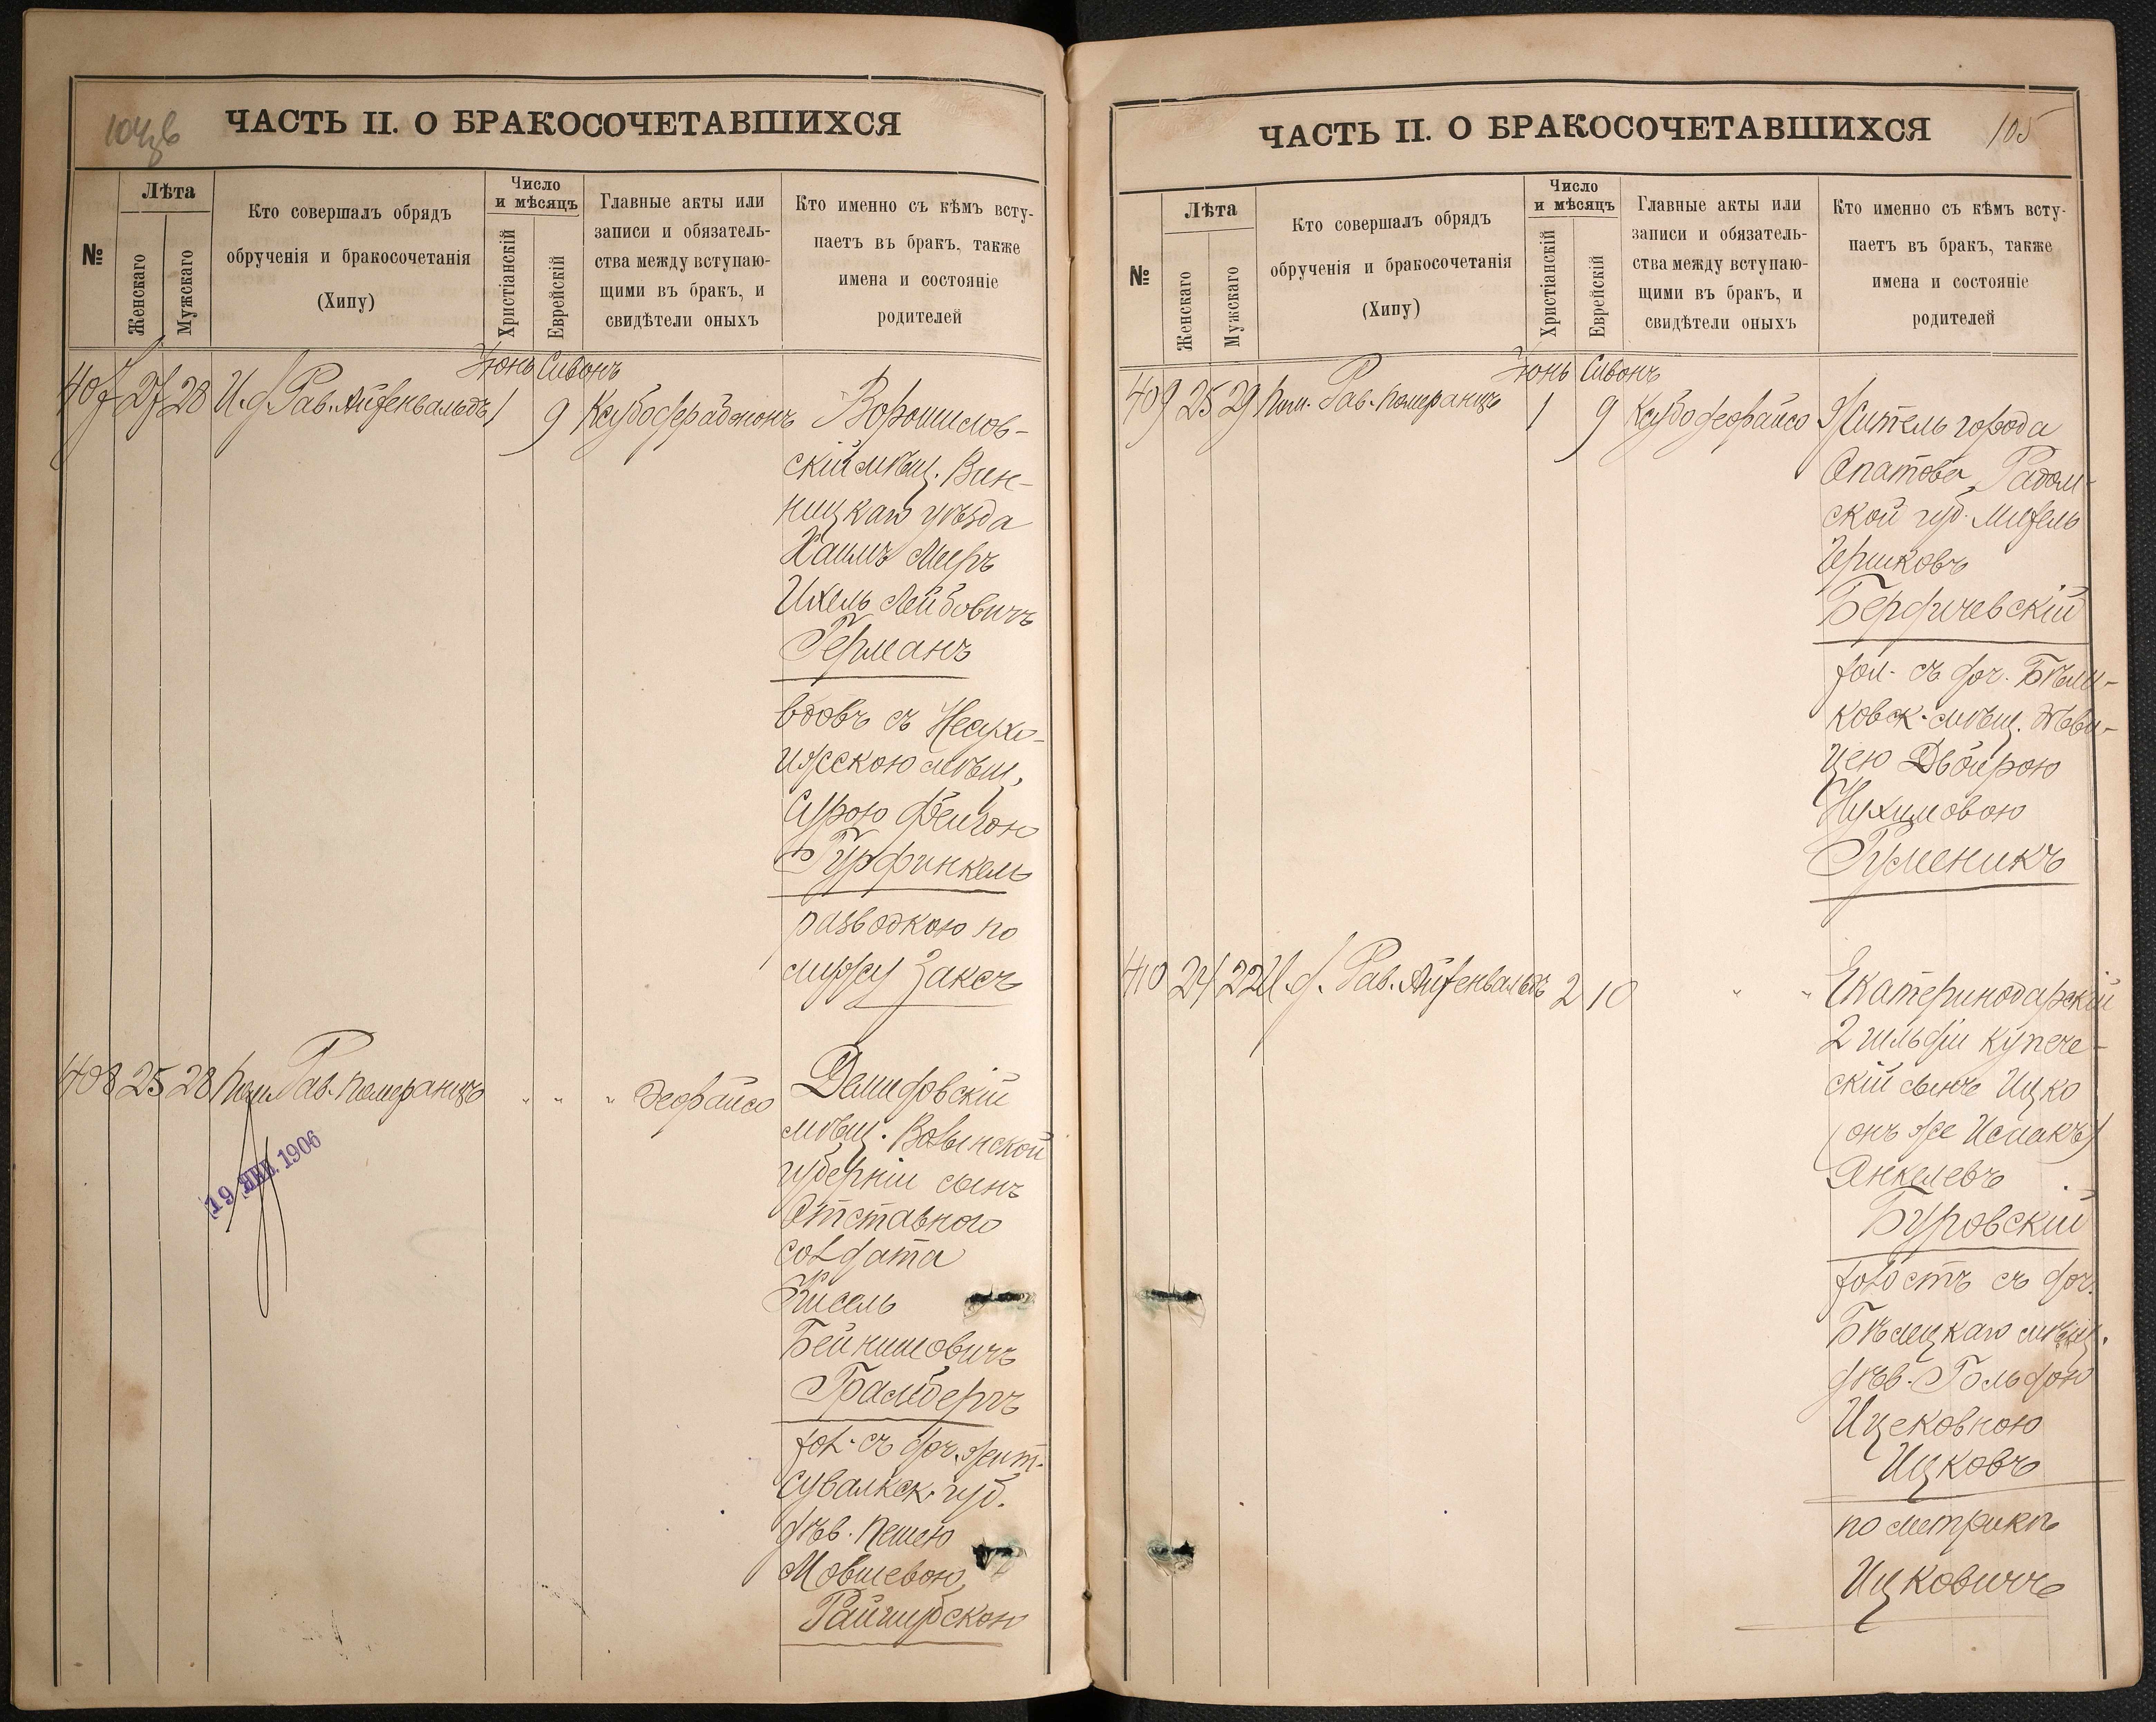 104об
ЧАСТЬ II. О БРАКОСОЧЕТАВШИХСЯ
№
Лѣта
Женскаго
Мужскаго
Кто совершалъ обрядъ
обрученія и бракосочетанія
(Хипу)
Число
и мѣсяцъ
Христіанскій
Еврейскій
Главные акты или
записи и обязатель-
ства между вступаю-
щими въ бракъ, и
свидѣтели оныхъ
Кто именно съ кѣмъ всту-
паетъ въ бракъ, также
имена и состояніе
родителей
Іюнь Сивонъ
407 27 28 И.д. Рав. Айзенвальдъ 1 9
Ворошилов-
скій мѣщ. Вин-
ницкаго уѣзда
Хаимъ Меръ
Ихель Лейбовичъ
Германъ
вдовъ съ
мѣщ.
Сурою Фейгою
Гурфинкель
разводкою по
мужу Заксъ
408 25 28 Пом. Рав. Померанцъ " " "
Демидовскій
мѣщ. Волынской
губерніи сынъ
Отставного
солдата
Кисель
Бейнишовичъ
Грамбергъ
хол. съ доч. жит.
Сувалкск. губ.
дѣв. Пешею
Мовшевою
19 ЯНВ. 1906
ЧАСТЬ II. О БРАКОСОЧЕТАВШИХСЯ
105
№
Лѣта
Женскаго
Мужскаго
Кто совершалъ обрядъ
обрученія и бракосочетанія
(Хипу)
Число
и мѣсяцъ
Христіанскій
Еврейскій
Главные акты или
записи и обязатель-
ства между вступаю-
щими въ бракъ, и
свидѣтели оныхъ
Кто именно съ кѣмъ всту-
паетъ въ бракъ, также
имена и состояніе
родителей
Іюнь Сивонъ
409 25 29 Пом. Рав. Померанцъ 1 9
Житель города
Опатова, Радом-
ской губ.
Гершковъ
Бердичевскій
хол. съ доч.
ковск. мѣщ. дѣви-
цею Двойрою
Нухимовою
Гуменикъ
410 24 22 И.д. Рав. Айзенвальдъ 2 10 " "
Екатеринодарскій
2 гильдіи купече-
скій сынъ Ицко
(онъ же Исаакъ)
Янкелевъ
Буровскій
холостъ съ доч.
Бѣлецкаго мѣщ.
дѣв. Гольдою
Ицековною
Ицковъ
по метрикѣ
Ицковичъ